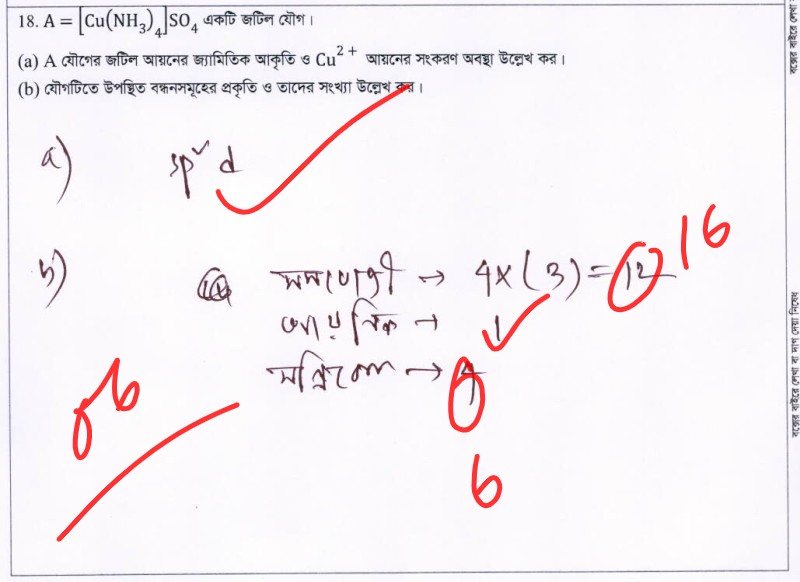 18. A = [Cu(NH₃)₄]SO₄ একটি জটিল যৌগ।
(a) A যৌগের জটিল আয়নের জ্যামিতিক আকৃতি ও Cu²⁺ আয়নের সংকরণ অবস্থা উল্লেখ কর।
(b) যৌগটিতে উপস্থিত বন্ধনসমূহের প্রকৃতি ও তাদের সংখ্যা উল্লেখ কর।
a) sp² d
b) সমযোজী → 4×(3) = 12 16
আয়নিক → 1
সন্নিবেশ → 4
6
বক্সের বাইরে লেখা বা দাগ দেয়া নিষেধ